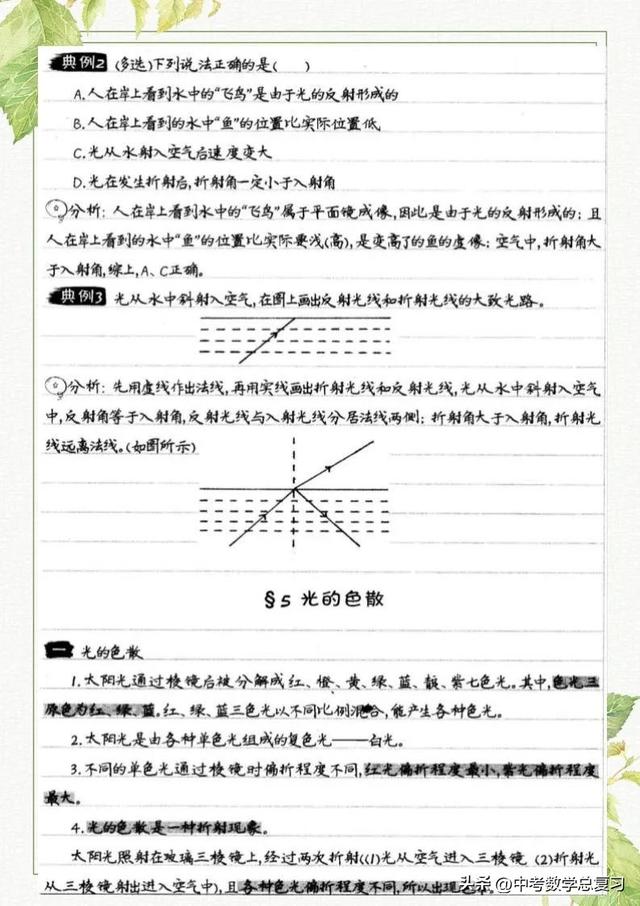 典例2 (多选)下列说法正确的是(  )
A.人在岸上看到水中的“飞鸟”是由于光的反射形成的
B.人在岸上看到的水中“鱼”的位置比实际位置低
C.光从水射入空气后速度变大
D.光在发生折射后,折射角一定小于入射角
分析: 人在岸上看到水中的“飞鸟”属于平面镜成像,因此是由于光的反射形成的; 且
人在岸上看到的水中“鱼”的位置比实际要浅(高),是变高了的鱼的虚像; 空气中,折射角大
于入射角,综上,A、C正确。
典例3 光从水中斜射入空气,在图上画出反射光线和折射光线的大致光路。
分析: 先用虚线作出法线,再用实线画出折射光线和反射光线,光从水中斜射入空气
中,反射角等于入射角,反射光线与入射光线分居法线两侧; 折射角大于入射角,折射光
线远离法线。(如图所示)
§5 光的色散
一 光的色散
1.太阳光通过棱镜后被分解成红、橙、黄、绿、蓝、靛、紫七色光。其中,色光三
原色为红、绿、蓝。红、绿、蓝三色光以不同比例混合,能产生各种色光。
2.太阳光是由各种单色光组成的复色光——白光。
3.不同的单色光通过棱镜时偏折程度不同,红光偏折程度最小,紫光偏折程度
最大。
4.光的色散是一种折射现象。
太阳光照射在玻璃三棱镜上,经过两次折射((1)光从空气进入三棱镜 (2)折射光
从三棱镜射出进入空气中),且各种色光偏折程度不同,所以出现色
头条 @中考数学总复习